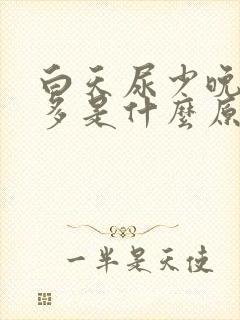 白天尿少晚
多是什麼原
一半是天使